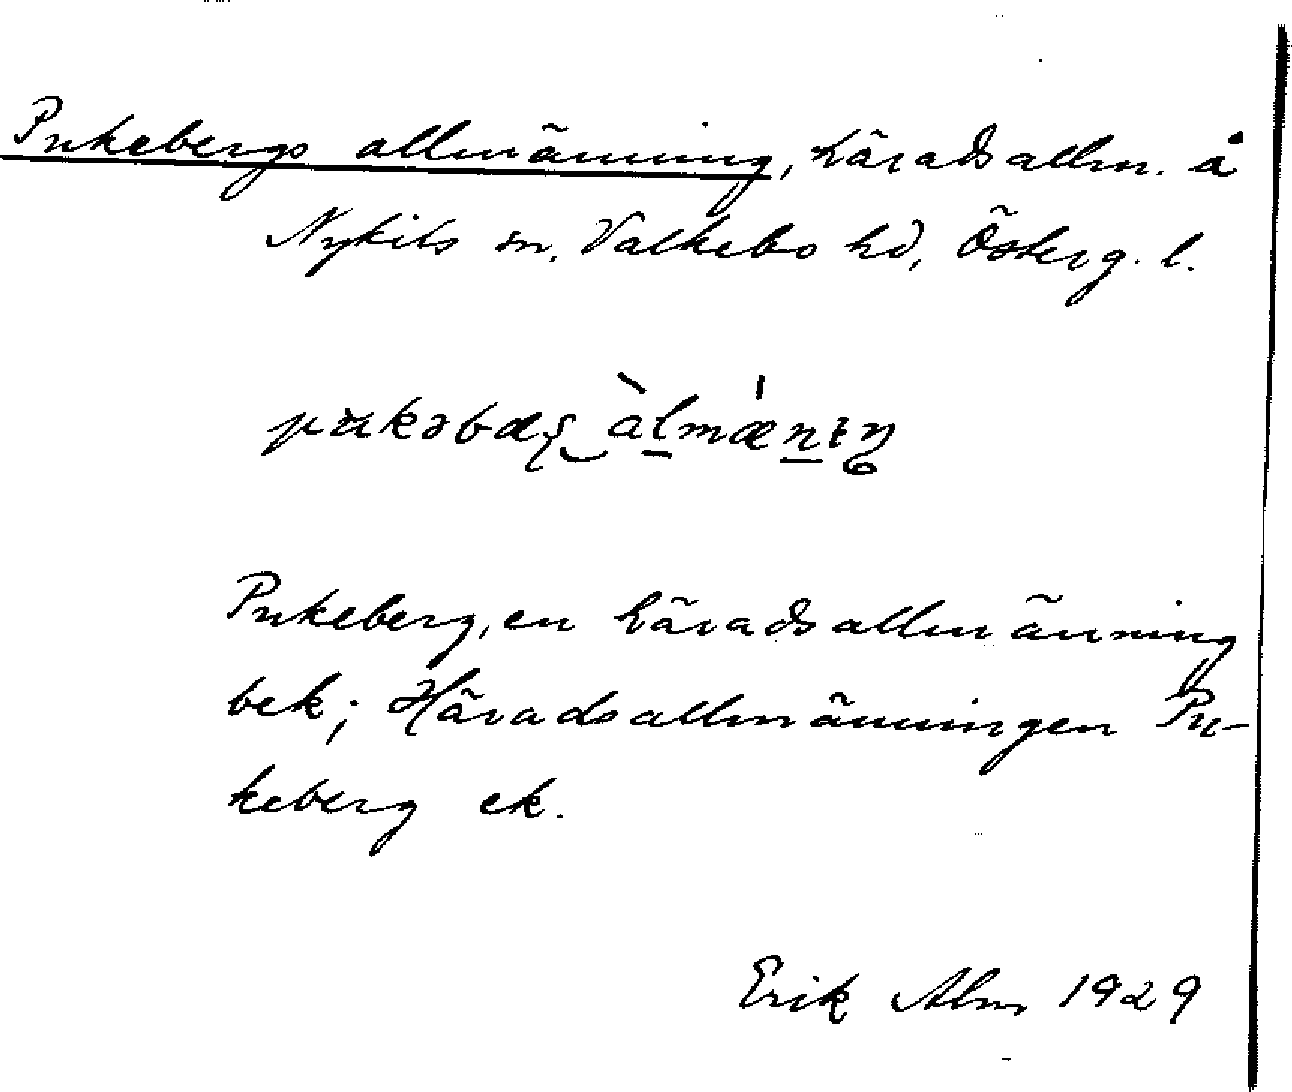 Pukebergs allmänning, häradsallm. å
Nykils sn, Valkebo hd, Österg. l.
Pukeberg, en häradsallmänning
bek; Häradsallmänningen Pu-
keberg ek.
Erik Alm 1929